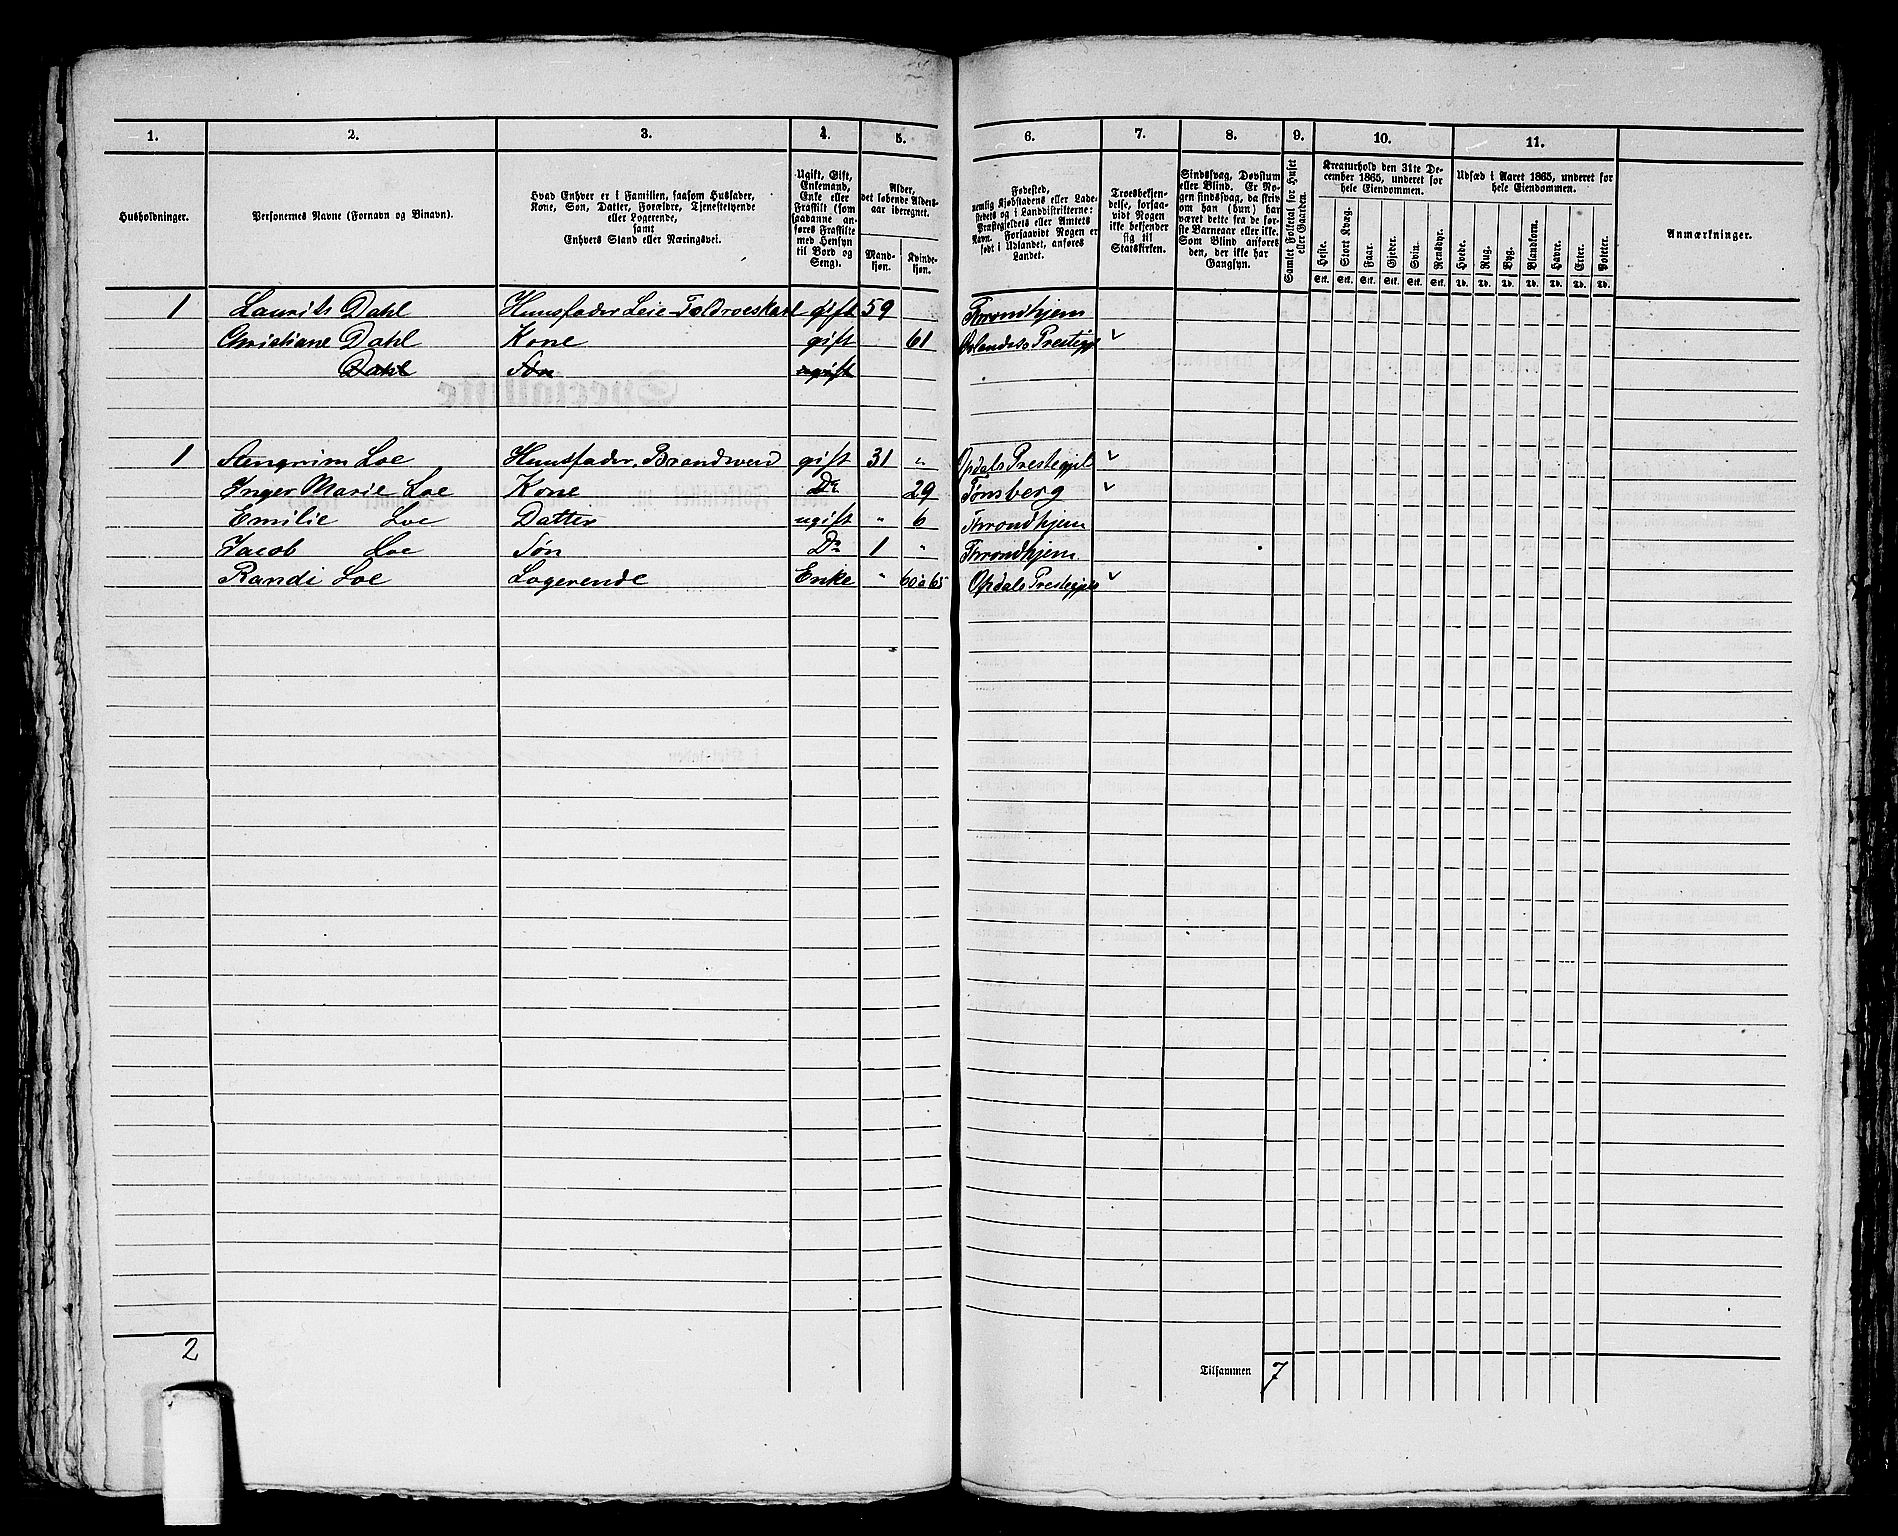 1. 2. 3. 4. 5. 6. 7. 8. 9. 10. 11.
Husholdninger.
Personernes Navne (Fornavn og Binavn).
Hvad Enhver er i Familien, saasom Husfader,
Kone, Søn, Datter, Forældre, Tjenestetyende
eller Logerende,
samt
Enhvers Stand eller Næringsvei.
Ugift, Gift,
Enkemand,
Enke eller
Fraskilt (som
saadanne an-
føres Fraskilte
med Hensyn
til Bord og
Seng).
Alder,
det løbende Alders-
aar iberegnet.
Mand-
kjøn.
Kvinde-
kjøn.
Fødested,
nemlig Kjøbstadens eller Lade-
stedets og i Landdistrikterne:
Præstegjeldets eller Amtets
Navn. Forsaavidt Nogen er
født i Udlandet, anføres
Landet.
Troesbekjen-
delse, forsaa-
vidt Nogen
ikke bekjender
sig til
Statskirken.
Sindssvag, Døvstum
eller Blind. Er No-
gen sindssvag, da skriv
om han (hun) har
været dette fra de før-
ste Barneaar eller ikke.
Som Blind anføres
den, der ikke har
Gangsyn.
Samlet Folketal for Huset
eller Gaarden.
Kreaturhold den 31te De-
cember 1865, underet for
hele Eiendommen.
Heste. Stort Kvæg. Faar. Gjeder. Svin. Rensdyr.
Stk. Stk. Stk. Stk. Stk. Stk.
Udsæd i Aaret 1865, underet for
hele Eiendommen.
Hvede. Rug. Byg. Blandkorn. Havre. Erter. Poteter.
Td. Td. Td. Td. Td. Td. Td.
Anmærkninger.
1 Laurits Dahl Huusfader Leie-Toldroeskarl gift 59 Throndhjem
Christiane Dahl Kone gift 61 Ørlandets Prestegjel
Dahl Søn ugift
1 Stengrim Loe Huusfader, Brandwend gift 31 " Opdals Prestegjel
Inger Marie Loe Kone Do 29 Tønsberg
Emilie Loe Datter ugift " 6 Throndhjem
Jacob Loe Søn Do 1 " Throndhjem
Randi Loe Logerende Enke " 60 a 65 Opdals Prestegjel
2
Tilsammen 7